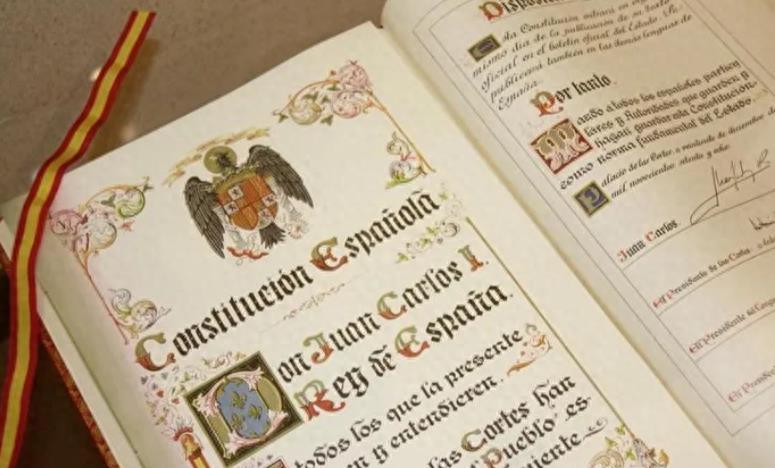 Constitución Española
Don Juan Carlos I.
Rey de España.
todos los que la presente
en y entendieren.
las Cortes han
Pueblo es
miente
Disposi
Esta Constitución entrará en vig
mismo día de la publicación de su texto
oficial en el boletín oficial del Estado. Se
publicará también en las demás lenguas de
España.
Por tanto,
Mando a todos los españoles particu
lares y Autoridades que guarden y
hagan guardar esta Constitución
como norma fundamental del Estado.
Palacio de las Cortes, a veintisiete de diciembre de
mil novecientos setenta y ocho.
Juan Carlos.
El Presidente de las Cortes
El Presidente del Cong
El Presidente
El Presid